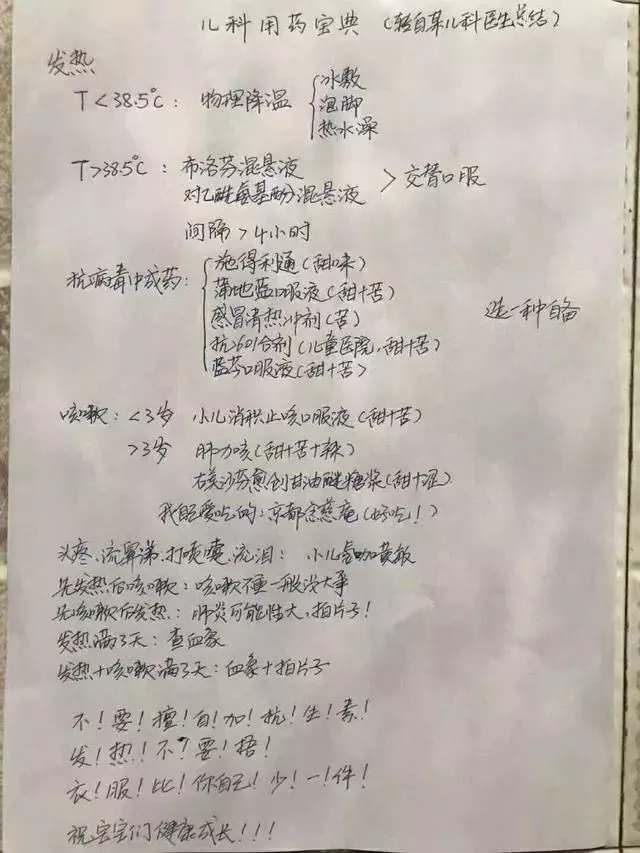 儿科用药宝典 (转自某儿科医生总结)
发热
T<38.5℃: 物理降温 冰敷
泡脚
热水澡
T>38.5℃: 布洛芬混悬液
对乙酰氨基酚混悬液 > 交替口服
间隔>4小时
抗病毒中成药: 施得利通(甜味)
蒲地蓝口服液(甜+苦)
感冒清热冲剂(苦) 选一种自备
抗601合剂(儿童医院,甜+苦)
蓝芩口服液(甜+苦)
咳嗽: <3岁 小儿消积止咳口服液(甜+苦)
>3岁 肺力咳(甜+苦+辣)
右美沙芬愈创甘油醚糖浆(甜+涩)
我自己爱吃的:京都念慈庵(好吃!)
头疼、流鼻涕、打喷嚏、流泪: 小儿氨咖黄敏
先发热后咳嗽: 咳嗽不重一般没大事
先咳嗽后发热: 肺炎可能性大,拍片子!
发热满3天: 查血象
发热+咳嗽满3天: 血象+拍片子
不!要!擅!自!加!抗!生!素!
发!热!不!要!捂!
衣!服!比!你自己!少!一!件!
祝宝宝们健康成长!!!